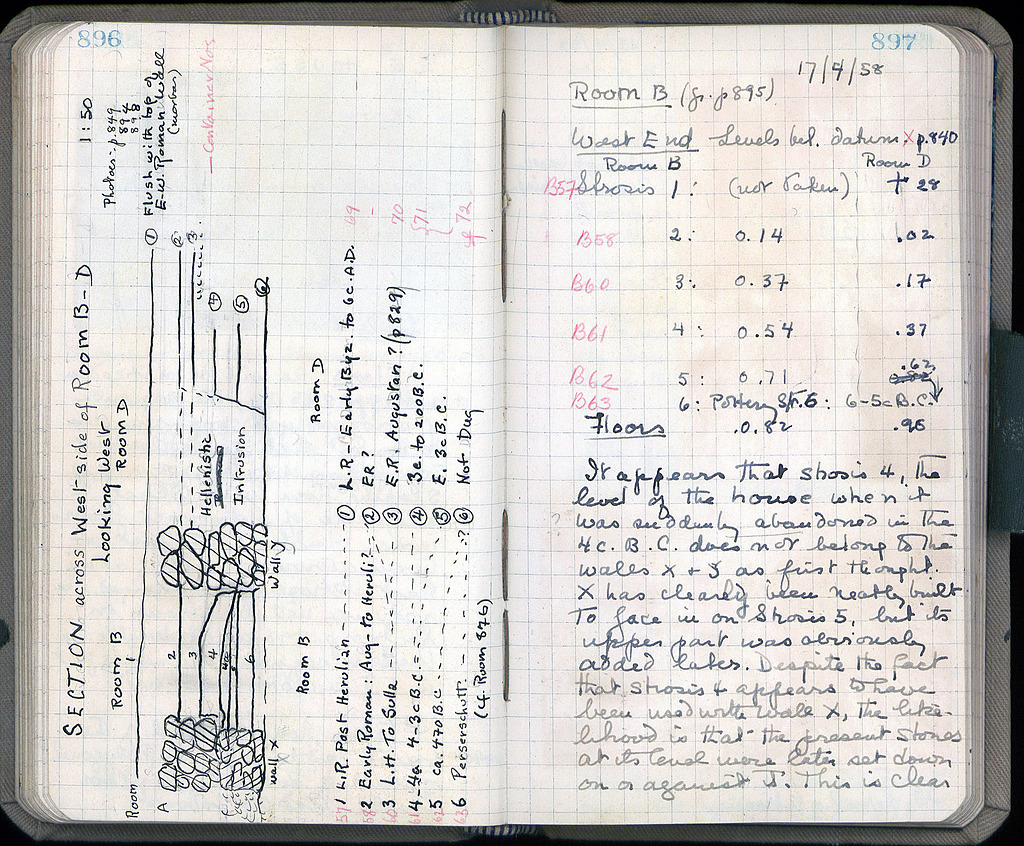 896
SECTION across West side of Room B-D
Looking West
1:50
Photos: p. 849
894
898
Room B
Room D
Room
A
1
2
3
4
4a
5
6
wall X
wall y
Hellenistic
Intrusion
① Flush with top of
E-W. Roman Wall
(mortar)
②
③
④
⑤
⑥
Container Nos
Room B
Room D
57 1 L.R. Post Herulian ① L.R - Early Byz. to 6c. A.D. 69
582 Early Roman: Aug- to Heruli? ② ER? -
603 L.H. To Sulla ③ E.R. Augustan? (p829) 70
614 4-3c B.C. ④ 3c. to 200 B.C. 71
5 ca. 470 B.C. ⑤ E. 3c B.C.
6 Perserschutt ? ⑥ Not Dug 72
(cf. Room 876)
897
17/4/58
Room B (fr. p 895)
West End Levels bel. datum X p. 840
Room B Room D
B57 Strosis 1: (not taken) + 28
B58 2: 0.14 .02
B60 3: 0.37 .17
B61 4: 0.54 .37
B62 5: 0.71 .62
B63 6: Pottery St. 6: 6-5c B.C.
Floors .0.82 .95
It appears that Strosis 4, the
level of the house when it
was suddenly abandoned in the
4c. B.C. does not belong to the
walls X + 3 as first thought.
X has clearly been neatly built
To face in on Strosis 5, but its
upper part was obviously
added later. Despite the fact
that Strosis 4 appears to have
been used with wall X, the like-
lihood is that the present stones
at its level were later set down
on or against it. This is clear